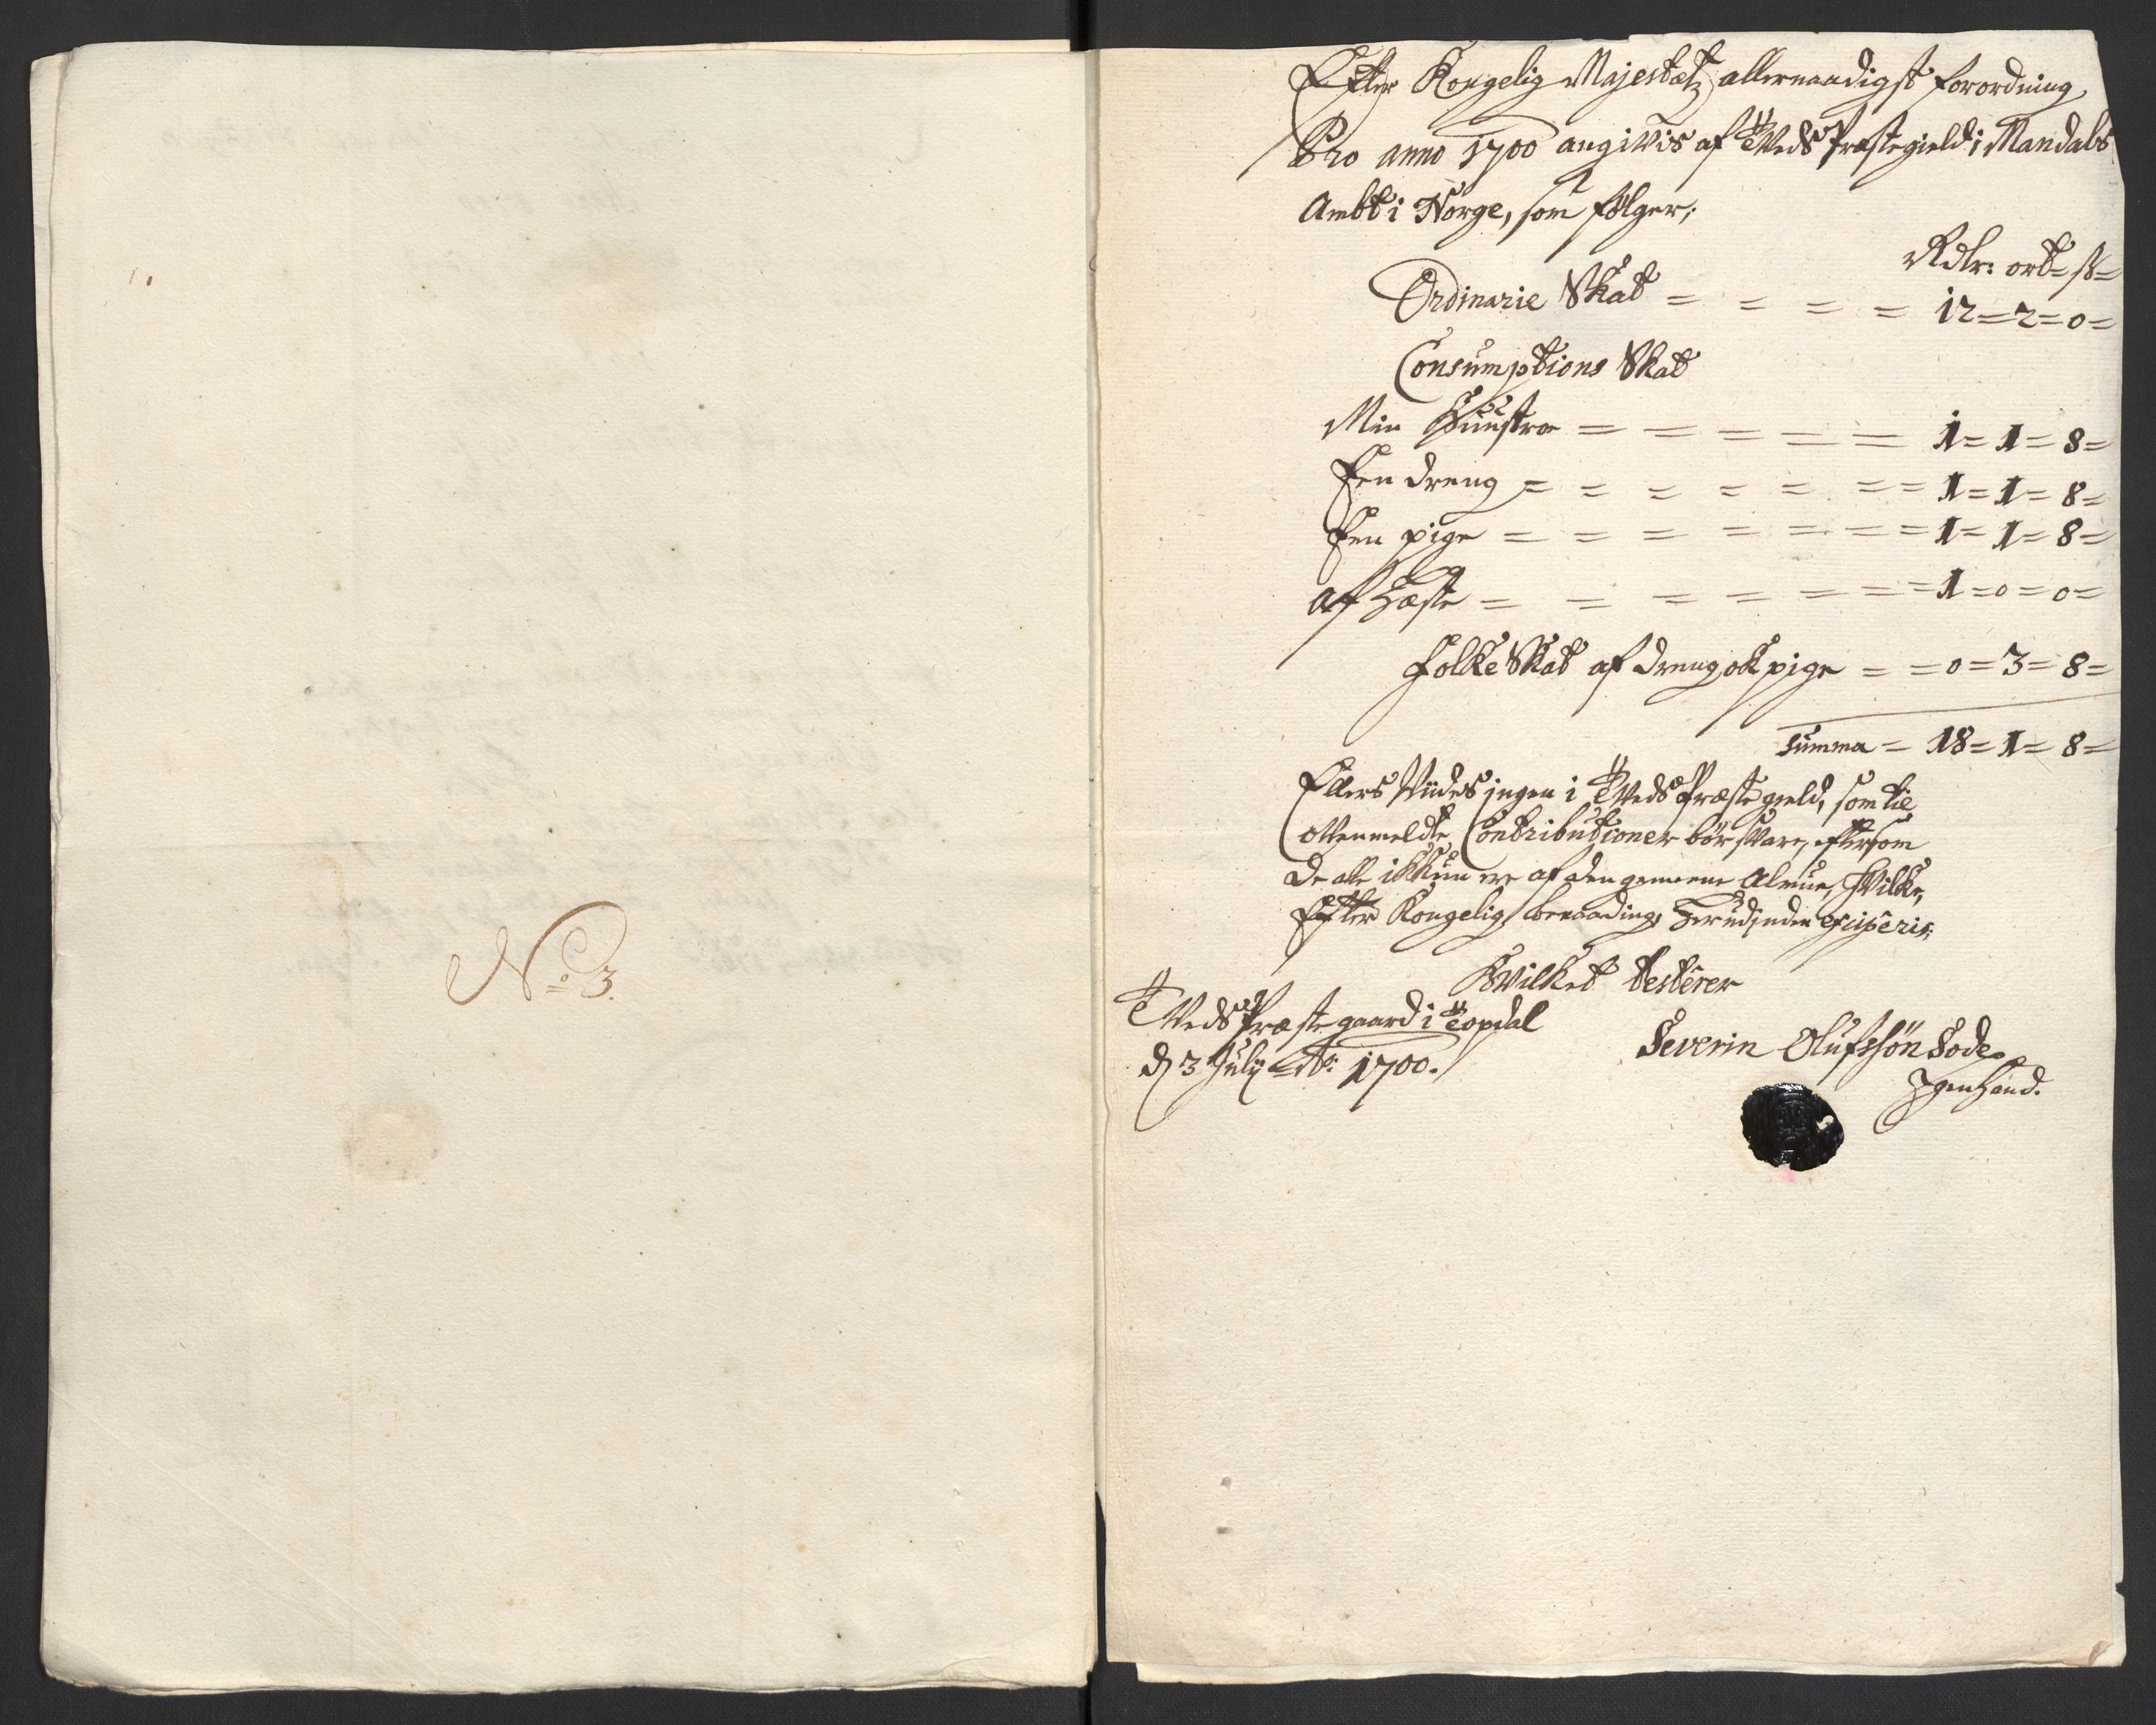 No 3.
Efter Kongelig Majestætz allernaadigst forordning
Pro anno 1700 angiVis af TVeds Præstegield i Mandals
Ambt i Norge, som følger;
Rdlr: ort= ß=
Ordinarie Skat = = = = 12=2=0=
Consumptions Skat
Min Huustro = = = = = 1=1=8=
Een dreng = = = = = = = 1=1=8=
Een pige = = = = = = = = 1=1=8=
Af Hæste = = = = = = = = 1=0=0=
FolkeSkat af dreng ok pige = = 0=3=8=
Summa = 18=1=8=
Ellers Viides ingen i TVeds Præstegield, som til
oVenmeldte Contributioner bør sVare, eftersom
de alle ikkun ere af den gemeene Almue, hVilke,
Efter Kongelig benaading herudinden exciperis;
hVilket testerer
TVeds Præstegaard i Topdal
d 3 Julij Ao: 1700.
Severin Olufssøn Gode
Egenhand.